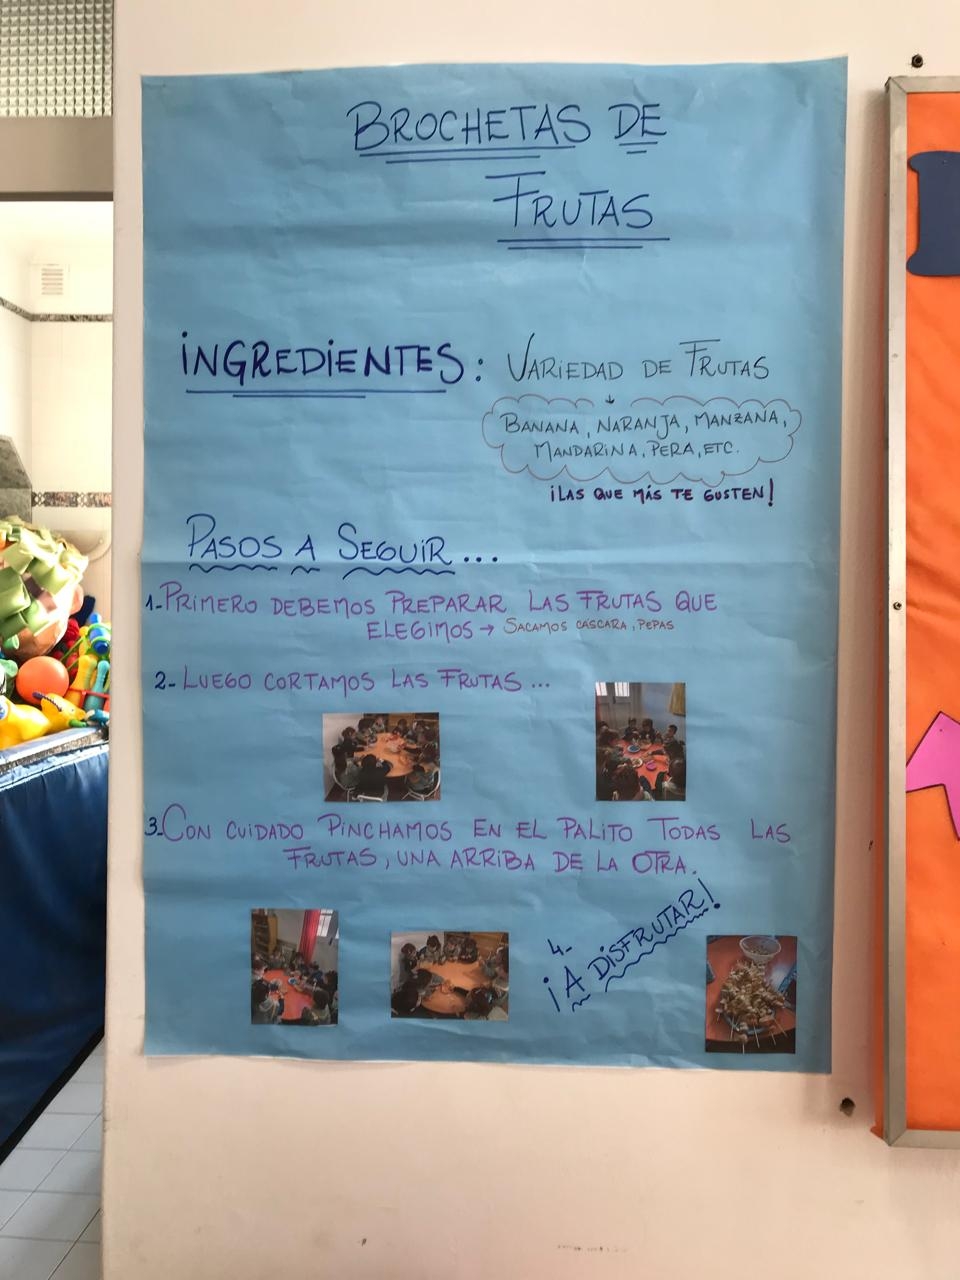 BROCHETAS DE
FRUTAS
INGREDIENTES: VARIEDAD DE FRUTAS
BANANA, NARANJA, MANZANA,
MANDARINA, PERA, ETC.
¡LAS QUE MÁS TE GUSTEN!
PASOS A SEGUIR...
1-PRIMERO DEBEMOS PREPARAR LAS FRUTAS QUE
ELEGIMOS → SACAMOS CÁSCARA, PEPAS
2- LUEGO CORTAMOS LAS FRUTAS...
3-CON CUIDADO PINCHAMOS EN EL PALITO TODAS LAS
FRUTAS, UNA ARRIBA DE LA OTRA.
4-
¡A DISFRUTAR!